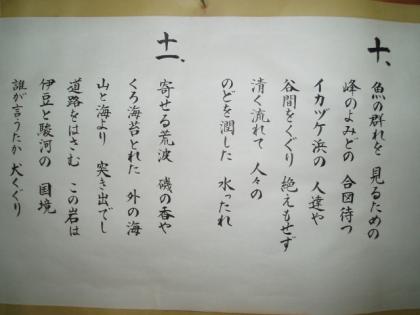 十、
魚の群れを 見るための
峰のよみどの 合図待つ
イカヅケ浜の 人達や
谷間をくぐり 絶えもせず
清く流れて 人々の
のどを潤した 水ったれ
十一、
寄せる荒波 磯の香や
くろ海苔とれた 外の海
山と海より 突き出でし
道路をはさむ この岩は
伊豆と駿河の 国境
誰が言うたか 犬くぐり